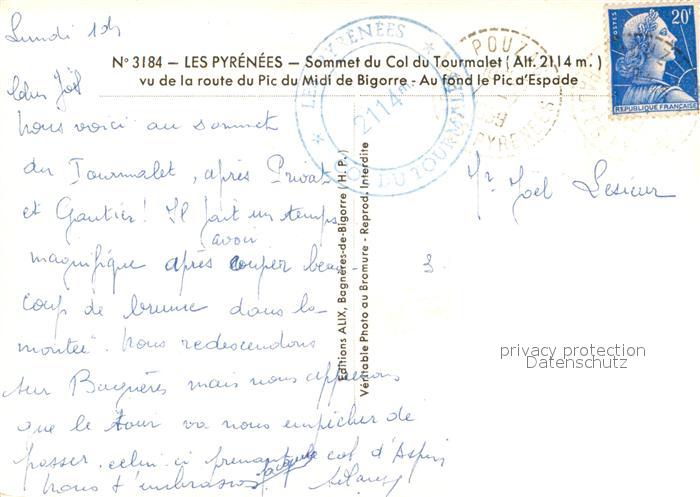 Lundi 14h
N° 3184 — LES PYRÉNÉES — Sommet du Col du Tourmalet (Alt. 2114 m.)
vu de la route du Pic du Midi de Bigorre - Au fond le Pic d'Espade
LES PYRÉNÉES
2114 m
COL DU TOURMALET
POUZ
PYRENEES
POSTES
20F
REPUBLIQUE FRANÇAISE
Cher Joël
Nous voici au sommet
du Tourmalet, après Privat
et Gautier! Il fait un temps
avoir
magnifique après couper beau-
coup de brume dans la
montée. Nous redescendons
sur Bagnères mais nous apprenons
que le tour va nous empêcher de
passer, celui-ci prenant le col d'Aspin
Nous t'embrassons
Mr Joël Lesieur
3
Editions ALIX, Bagnères-de-Bigorre (H. P.)
Véritable Photo au Bromure - Reprod. Interdite
privacy protection
Datenschutz